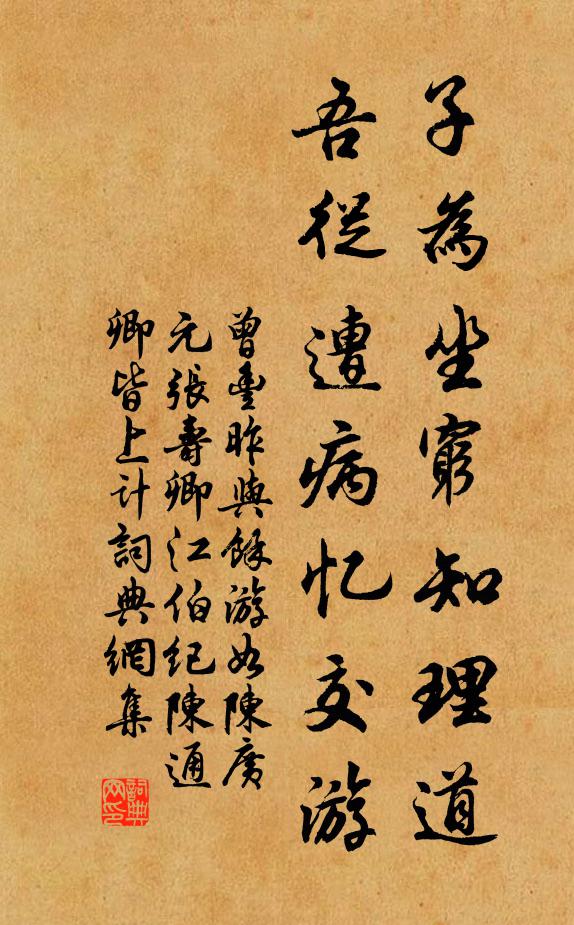 子為坐窮知理道
吾從遭病忆交游
曾豐昨與餘游如陳廣
元張壽卿江伯紀陳通
卿皆上计詞典網集
詞典網印